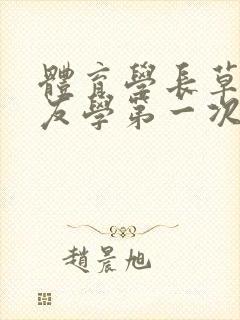 體育學長草
友學第一次
趙晨旭